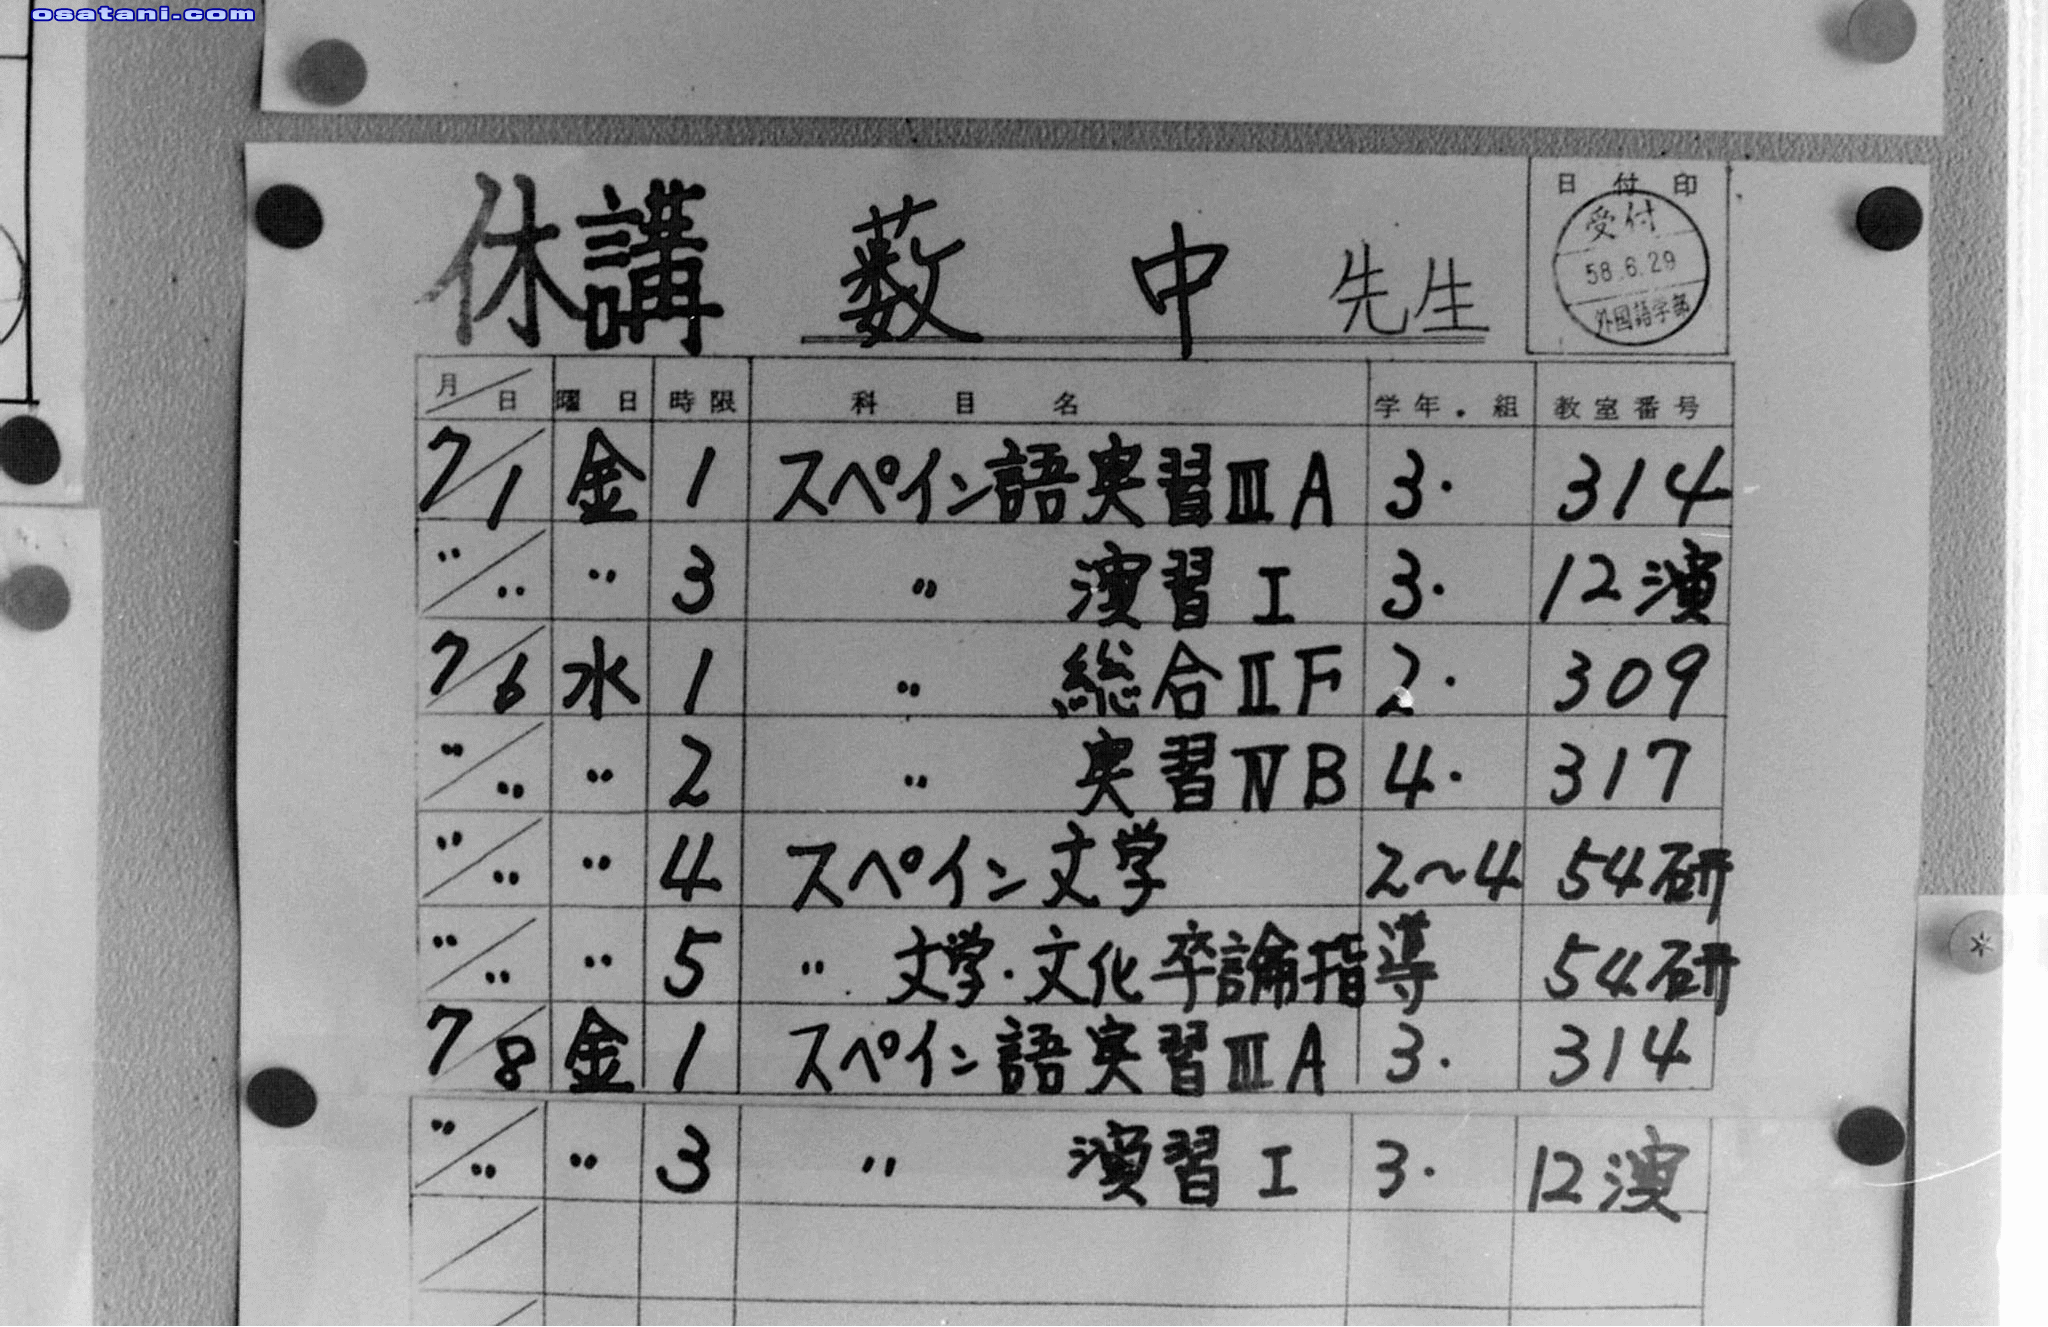 osatani.com
休講 薮中先生
日付印
受付
58.6.29
外国語学部
月/日 曜日 時限 科目名 学年.組 教室番号
7/1 金 1 スペイン語実習ⅢA 3. 314
〃/〃 〃 3 〃 演習Ⅰ 3. 12演
7/6 水 1 〃 総合ⅡF 2. 309
〃/〃 〃 2 〃 実習ⅣB 4. 317
〃/〃 〃 4 スペイン文学 2~4 54研
〃/〃 〃 5 〃 文学・文化卒論指導 54研
7/8 金 1 スペイン語実習ⅢA 3. 314
〃/〃 〃 3 〃 演習Ⅰ 3. 12演